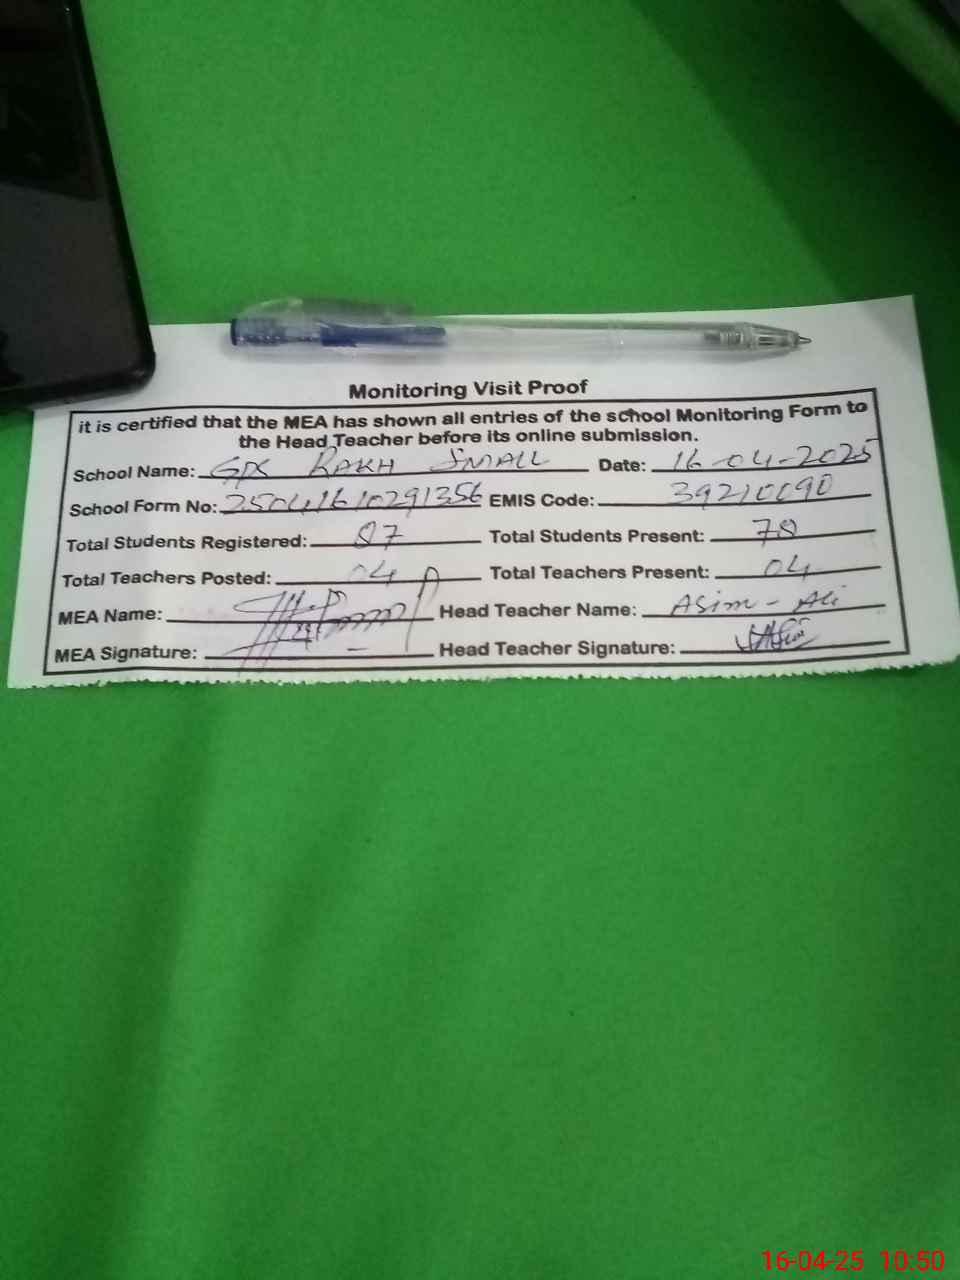 Monitoring Visit Proof
it is certified that the MEA has shown all entries of the school Monitoring Form to
the Head Teacher before its online submission.
School Name: GPS RAKH SMALL Date: 16-04-2025
School Form No: 25041610291356 EMIS Code: 39210090
Total Students Registered: 87 Total Students Present: 78
Total Teachers Posted: 04 Total Teachers Present: 04
MEA Name: Head Teacher Name: Asim - Ali
MEA Signature: Head Teacher Signature:
16-04-25 10:50